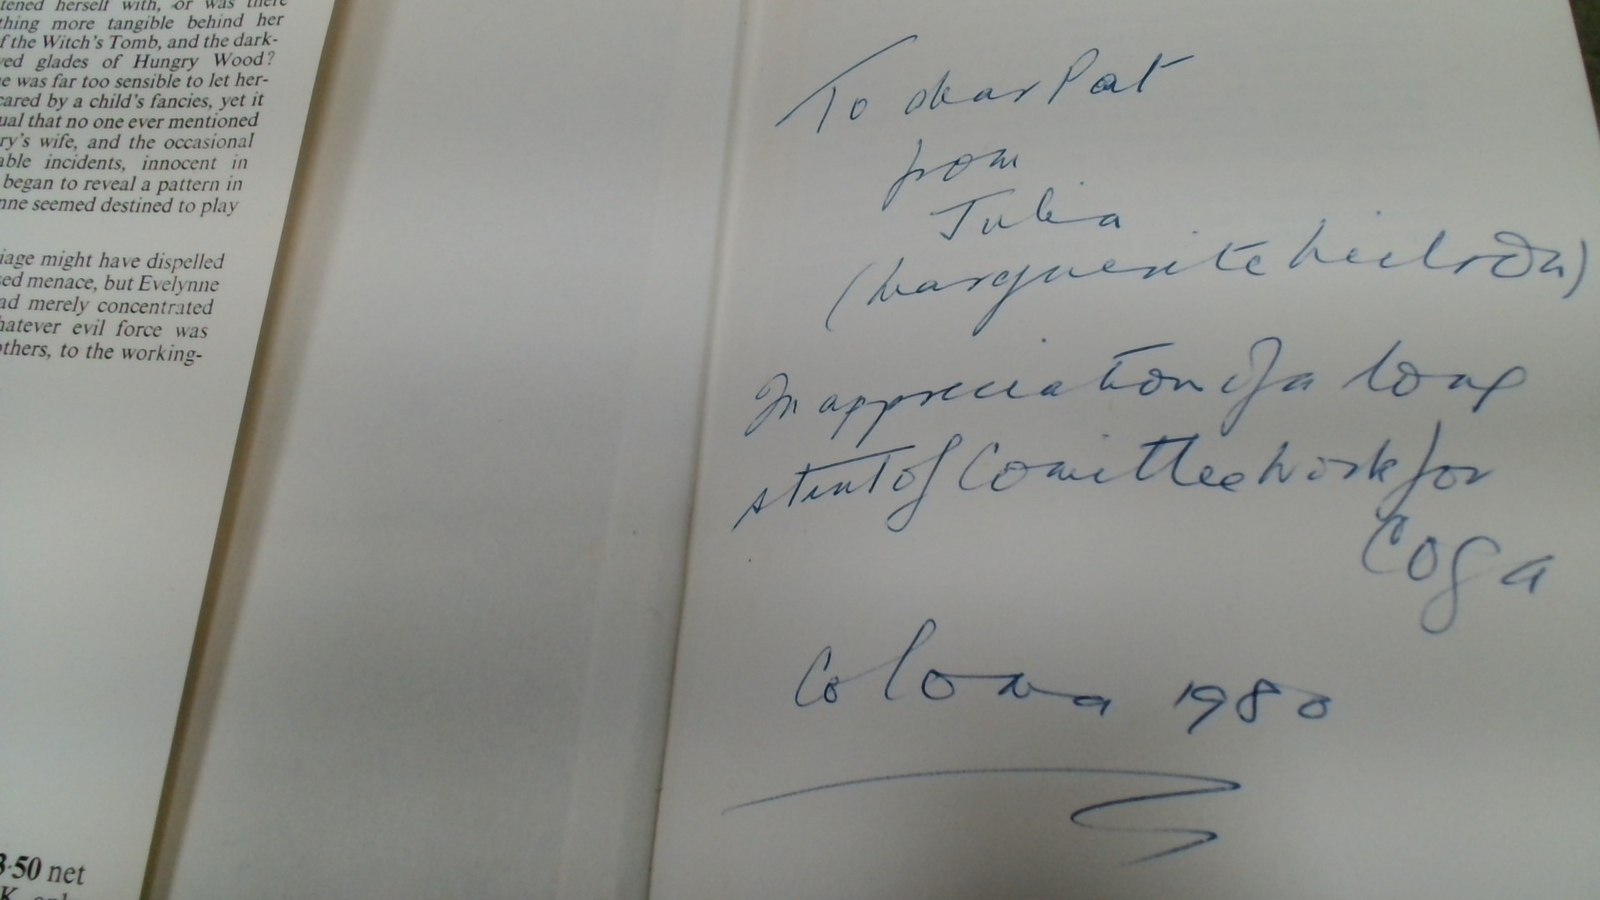 tened herself with, or was there
thing more tangible behind her
f the Witch's Tomb, and the dark-
ved glades of Hungry Wood?
e was far too sensible to let her-
cared by a child's fancies, yet it
ual that no one ever mentioned
ry's wife, and the occasional
able incidents, innocent in
began to reveal a pattern in
nne seemed destined to play
iage might have dispelled
sed menace, but Evelynne
ad merely concentrated
hatever evil force was
others, to the working-
3·50 net
To dear Pat
from
Julia
(Marguerite
In appreciation of a long
stint of Comittee work for
Coga
Coloma 1980